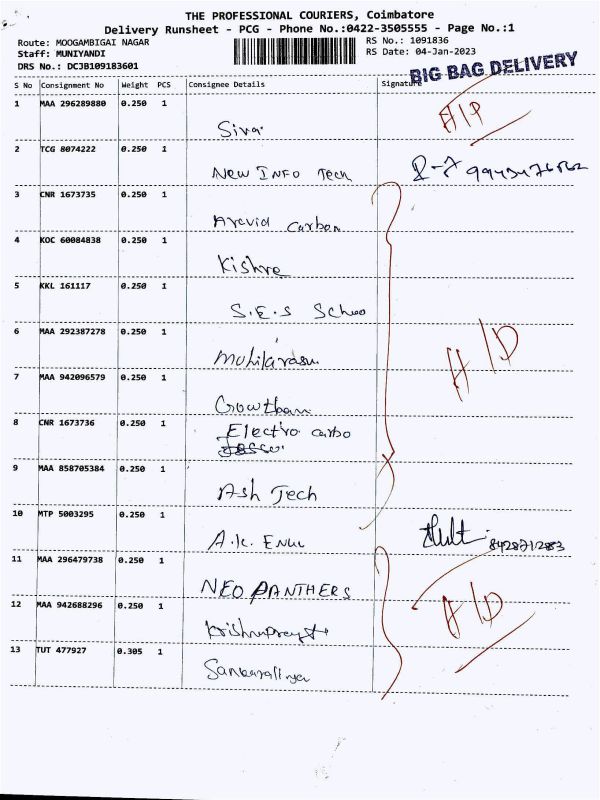 THE PROFESSIONAL COURIERS, Coimbatore
Delivery Runsheet - PCG - Phone No.:0422-3505555 - Page No.:1
Route: MOOGAMBIGAI NAGAR RS No.: 1091836
Staff: MUNIYANDI RS Date: 04-Jan-2023
DRS No.: DCJB109183601
BIG BAG DELIVERY
S No Consignment No Weight PCS Consignee Details Signature
1 MAA 296289880 0.250 1
Siva
2 TCG 8074222 0.250 1
New INFO Tech
3 CNR 1673735 0.250 1
Aravid Carbon
4 KOC 60084838 0.250 1
Kishre
5 KKL 161117 0.250 1
S.E.S Schoo
6 MAA 292387278 0.250 1
Muhilarasu
H/D
7 MAA 942096579 0.250 1
Gowtham
8 CNR 1673736 0.250 1
Electro carbo
9 MAA 858705384 0.250 1
Ash Tech
10 MTP 5003295 0.250 1
A.K.
11 MAA 296479738 0.250 1
NEO PANTHERS
H/D
12 MAA 942688296 0.250 1
13 TUT 477927 0.305 1